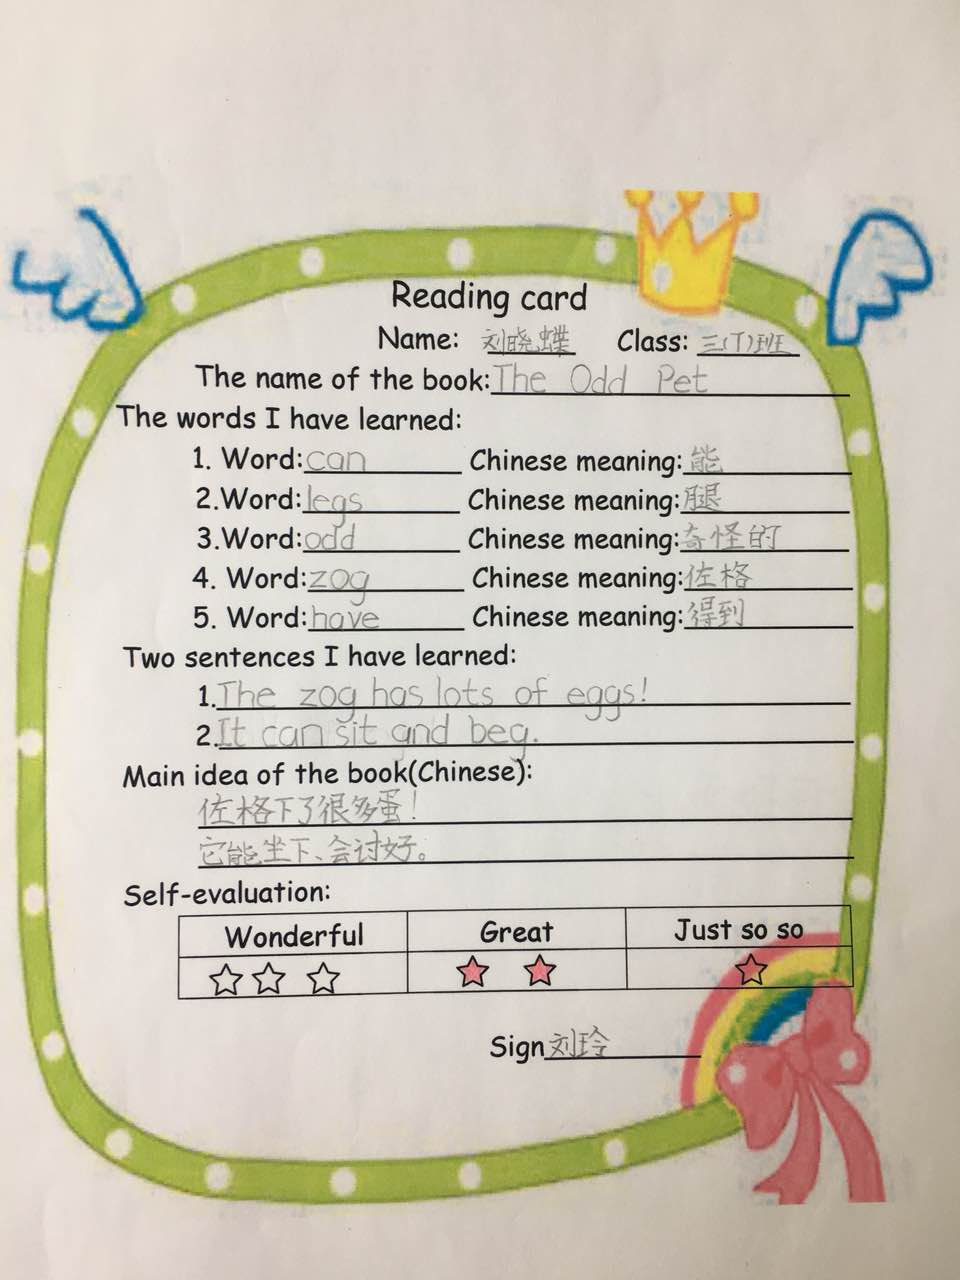 Reading card
Name: 刘晓蝶 Class: 三(1)班
The name of the book: The Odd Pet
The words I have learned:
1. Word: can Chinese meaning: 能
2.Word: legs Chinese meaning: 腿
3.Word: odd Chinese meaning: 奇怪的
4. Word: zog Chinese meaning: 佐格
5. Word: have Chinese meaning: 得到
Two sentences I have learned:
1.The zog has lots of eggs!
2.It can sit and beg.
Main idea of the book(Chinese):
佐格下了很多蛋!
它能坐下、会讨好。
Self-evaluation:
Wonderful Great Just so so
Sign 刘玲